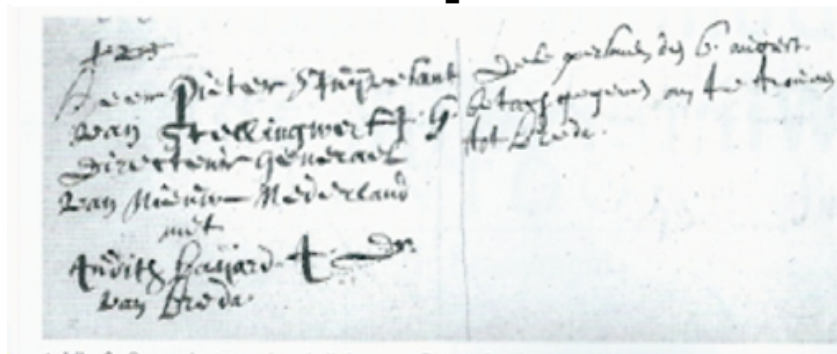 Heer Pieter Stuijvesant
van Stellingwerf J. G.
Directeur Generael
van Nieuw Nederland
met
Judith Baijard J. Dr.
van Breda
dese personen den 6. august.
betooch gegeven om te trouwen
tot Breda.